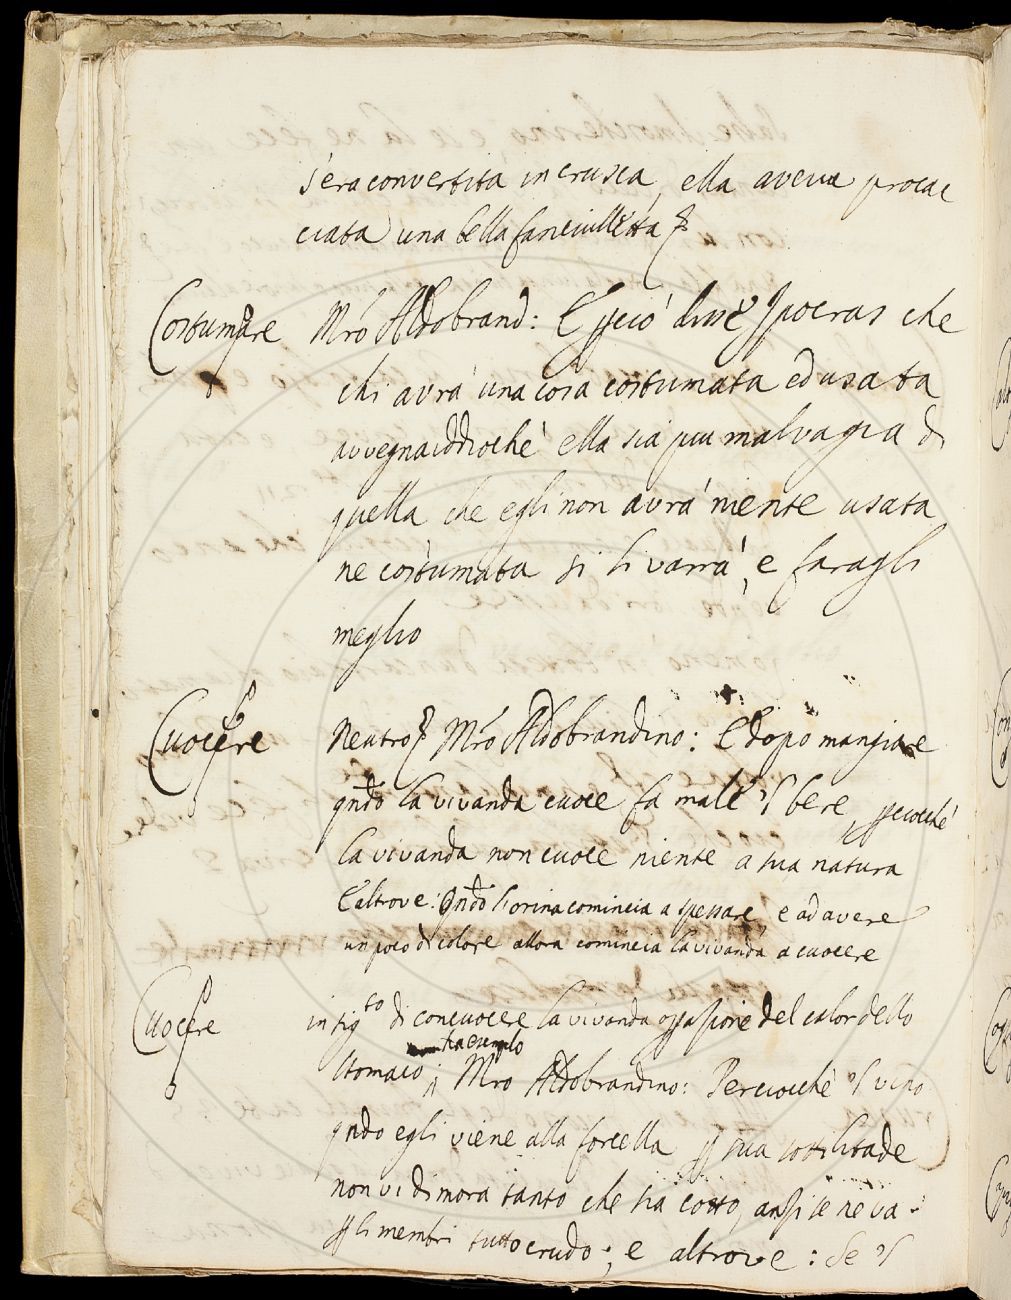 s'era convertita in crusca, ella aveva procac
ciata una bella fanciulletta
Costumare Mro Aldobrand: E pciò disse Ipocras che
chi avrà una cosa costumata ed usata
avvegnaiddiochè ella sia piu malvagia di
quella che egli non avrà niente usata
ne costumata si li varrà, e faragli
meglio
Cuocere Neutro Mro Aldobrandino: E dopo mangiare
qndo la vivanda cuoce fa male 'l bere, pciocchè
la vivanda non cuoce niente a sua natura
E altrove: Qndo l'orina comincia a spessare, e ad avere
un poco di colore allora comincia la vivanda a cuocere
Cuocere in sigto di concuocere la vivanda opassione del calor dello
stomaco; ha esemplo Mro Aldobrandino: Perciocchè 'l vino
qndo egli viene alla forcella p sua sottilitade
non vi dimora tanto che sia cotto, anzi se ne va
p li membri tutto crudo; e altrove: Se 'l